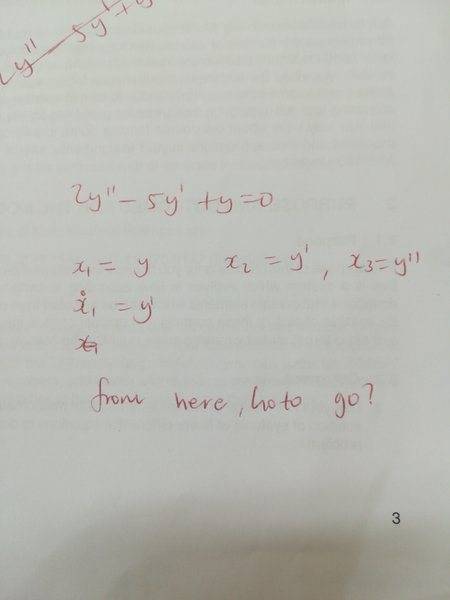 2y'' - 5y' + y
2y'' - 5y' + y = 0
x₁ = y x₂ = y' , x₃ = y''
ẋ₁ = y'
x₁
from here, ho to go?
3